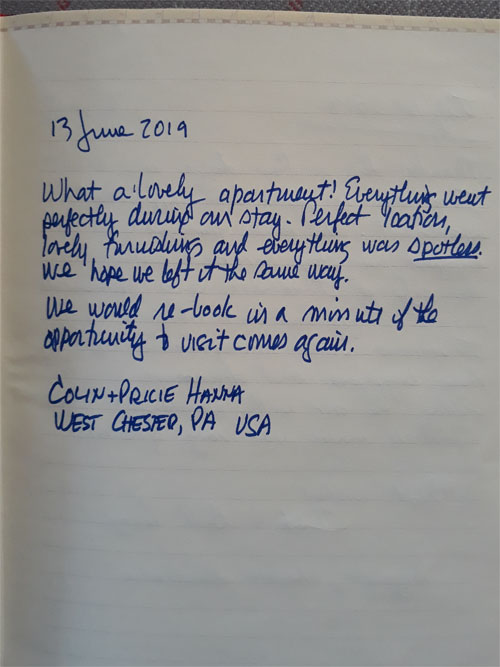 13 June 2019
What a lovely apartment! Everything went
perfectly during our stay. Perfect location,
lovely furnishings and everything was spotless.
We hope we left it the same way.
We would re-book in a minute if the
opportunity to visit comes again.
COLIN + PRICIE HANNA
WEST CHESTER, PA USA